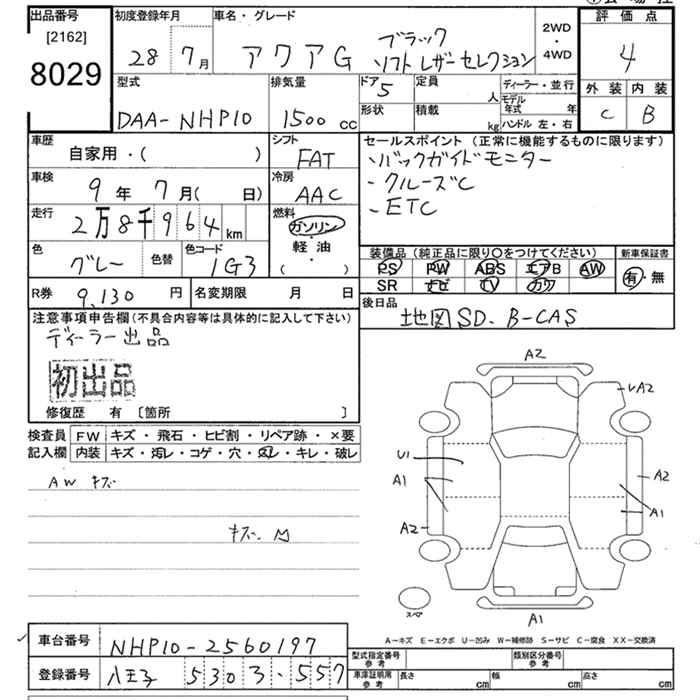 出品番号 初度登録年月 車名・グレード 評価点
[2162] 28年 7月 アクア G ブラック 2WD・4WD 4
8029 ソフトレザーセレクション
外装 内装
C B
型式 排気量 ドア 定員 ディーラー・並行
DAA-NHP10 1500 cc 5 人 モデル年式 年
形状 積載 kg ハンドル 左・右
車歴 シフト セールスポイント (正常に機能するものに限ります)
自家用・( ) FAT ・バックガイドモニター
車検 冷房 ・クルーズC
9年 7月( 日) AAC ・ETC
走行 燃料
2万8千964 km ガソリン・軽油・( )
色 色替 色コード 装備品 (純正品に限り〇をつけてください) 新車保証書
グレー 1G3 PS PW ABS エアB AW 有・無
SR ナビ TV カワ
R券 9,130 円 名変期限 月 日 後日品
地図SD、B-CAS
注意事項申告欄(不具合内容等は具体的に記入して下さい)
ディーラー出品
初出品
修復歴 有 [箇所 ]
検査員 FW キズ・飛石・ヒビ割・リペア跡・×要
記入欄 内装 キズ・汚レ・コゲ・穴・スレ・キレ・破レ
AW キズ
キズ、M
A2
A2
U1
A1
A2
A2
A1
A1
スペア
A-キズ E-エクボ U-凹み W-補修跡 S-サビ C-腐食 XX-交換済
車台番号 NHP10-2560197
登録番号 八王子 5303-557
型式指定番号 参考 類別区分番号 参考
車庫証明用 参考 長さ cm 幅 cm 高さ cm